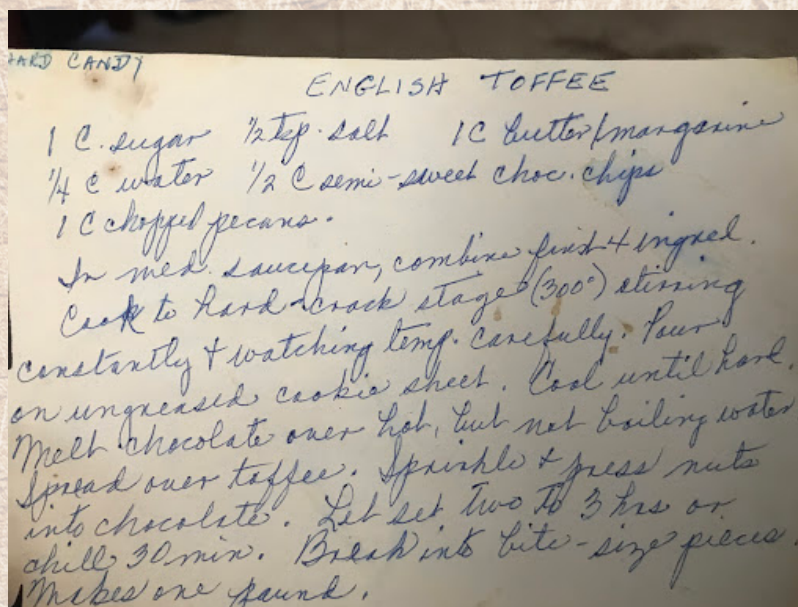 HARD CANDY
ENGLISH TOFFEE
1 C. sugar ½ tsp. salt 1 C butter/margarine
¼ C water ½ C semi-sweet choc. chips
1 C chopped pecans.
In med. saucepan, combine first 4 ingred.
Cook to hard-crack stage (300°) stirring
constantly + watching temp. carefully. Pour
on ungreased cookie sheet. Cool until hard.
Melt chocolate over hot, but not boiling water
Spread over toffee. Sprinkle + press nuts
into chocolate. Let set two to 3 hrs or
chill 30 min. Break into bite-size pieces.
Makes one pound.